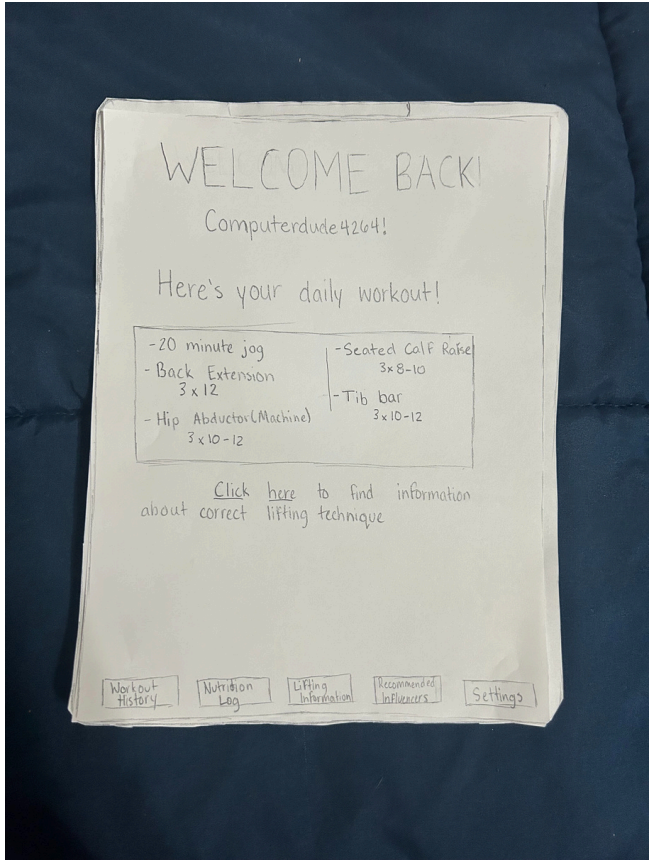 WELCOME BACK!
Computerdude4264!
Here's your daily workout!
-20 minute jog
- Back Extension
3 x 12
- Hip Abductor(Machine)
3 x 10-12
-Seated Calf Raise
3x 8-10
-Tib bar
3 x 10-12
Click here to find information
about correct lifting technique
Workout
History
Nutrition
Log
Lifting
Information
Recommended
Influencers
Settings